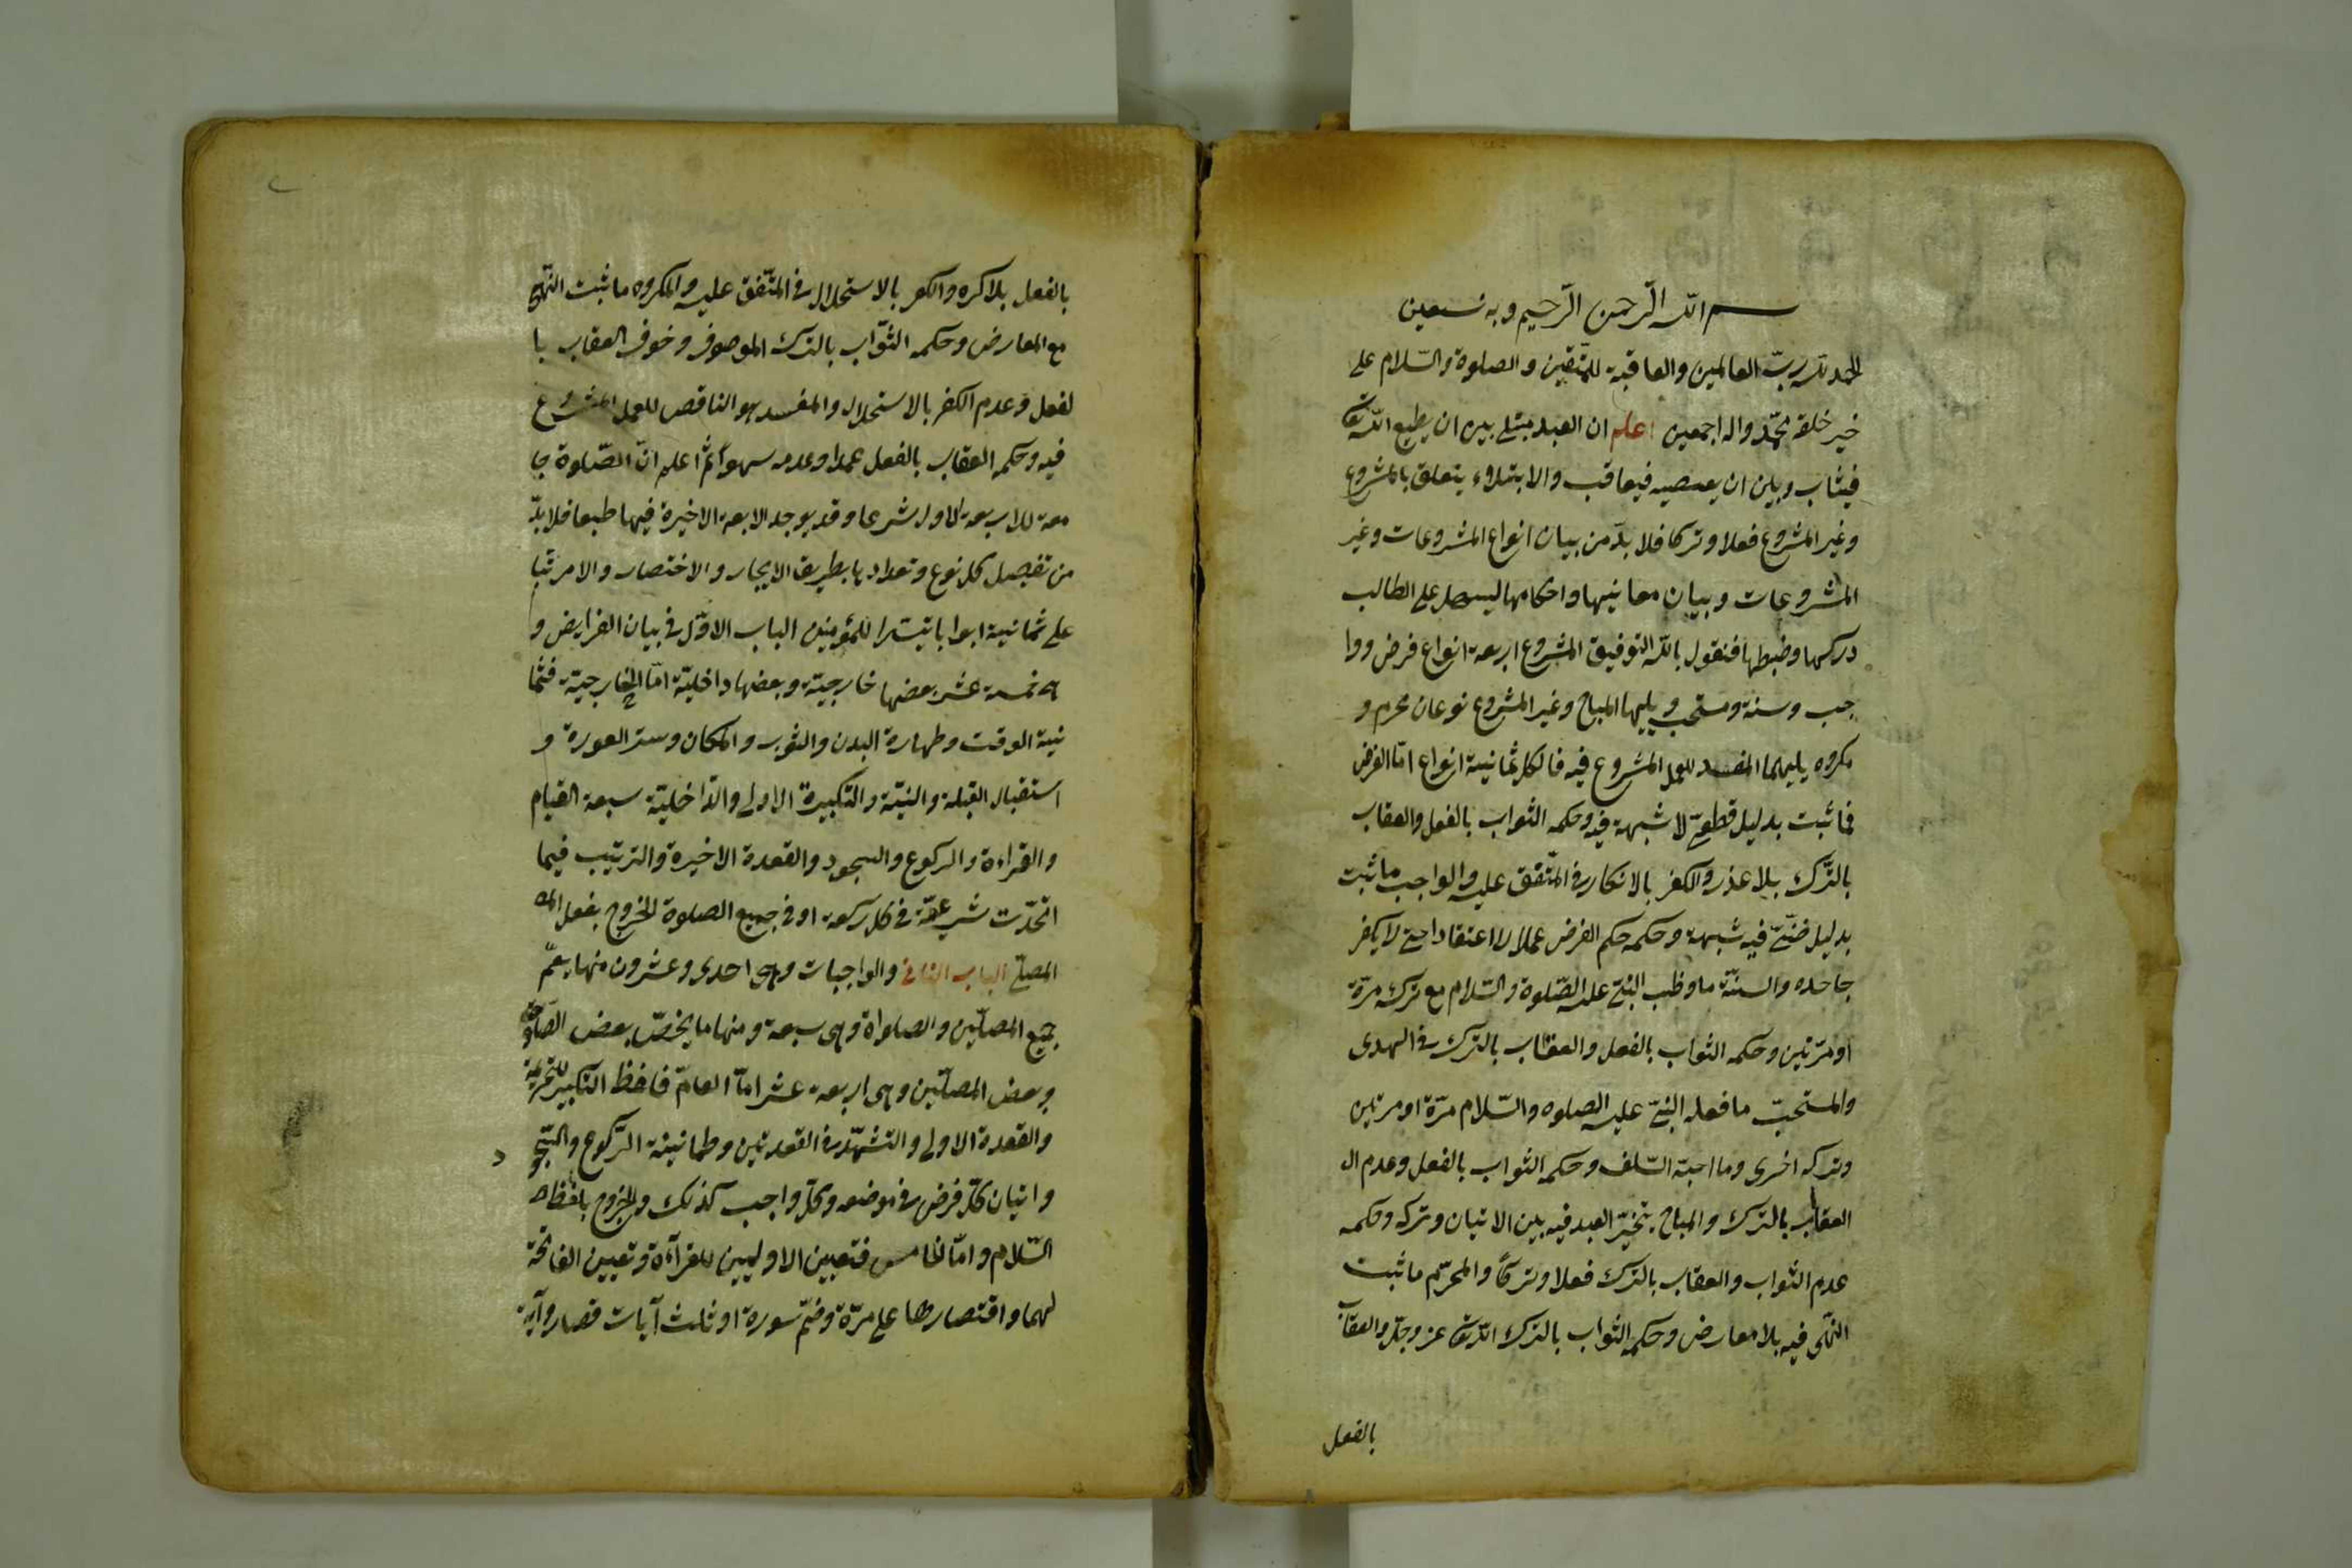 بسم الله الرّحمن الرّحيم وبه نستعين
الحمد لله ربّ العالمين والعاقبة للمتّقين والصلوة والسّلام على
خير خلقه محمّد واله اجمعين اعلم ان العبد مبتلى بين ان يطيع الله تعا
فيثاب وبين ان يعصيه فيعاقب والابتلاء يتعلق بالمشروع
وغير المشروع فعلا وتركا فلا بدّ من بيان انواع المشروعات وغير
المشروعات وبيان معانيها واحكامها ليسهل على الطالب
دركها وضبطها فنقول بالله التوفيق المشروع اربعة انواع فرض ووا
جب وسنة ومستحب ويليها المباح وغير المشروع نوعان محرم و
مكروه يليهما المفسد للعمل المشروع فيه فالكل ثمانية انواع امّا الفرض
فما ثبت بدليل قطعىّ لا شبهة فيه وحكمه الثواب بالفعل والعقاب
بالتّرك بلا عذر والكفر بالانكار فى المتّفق عليه والواجب ما ثبت
بدليل ظنّىّ فيه شبهة وحكمه حكم الفرض عملا لا اعتقادا حتى لا يكفر
جاحده والسنّة ما وظب النبىّ عليه الصّلوة والسّلام مع تركه مرّة
او مرّتين وحكمه الثواب بالفعل والعقاب بالترك فى الهدى
والمستحبّ ما فعله النبىّ عليه الصلوه والسّلام مرّة او مرتين
وتركه اخرى وما احبّه السّلف وحكمه الثواب بالفعل وعدم ال
العقاب بالترك والمباح يتخيّر العبد فيه بين الاتيان وتركه وحكمه
عدم الثواب والعقاب بالترك فعلا وتركًا والمحرّم ما ثبت
النّهى فيه بلا معارض وحكمه الثواب بالترك الله تعا عز وجلّ والعقاب
بالفعل
بالفعل بلا كره والكفر بالاستحلال فى المتّفق عليه والمكروه ما ثبت النّهى
مع المعارض وحكمه الثّواب بالترك الموصوف وخوف العقاب با
لفعل وعدم الكفر بالاستحلال والمفسد هو الناقص للعمل المشروع
فيه وحكمه العقاب بالفعل عمدا وعدمه سهوًا ثمّ اعلم انّ الصّلوة جا
معة للاربعة الاول شرعا وقد يوجد الابعة الاخيرة فيها طبعا فلا بدّ
من تفصيل كل نوع وتعدادها بطريق الايجاز والاختصار والامر تبا
على ثمانية ابوابا تيسّرا للمؤمنين الباب الاوّل فى بيان الفرايض و
هى خمسة عشر بعضها خارجيّة وبعضها داخليّة امّا الخارجيّة فثما
نية الوقت وطهارة البدن والثوب والمكان وستر العورة و
استقبال القبلة والنيّة والتكبيرة الاولى والدّاخليّة سبعة القيام
والقراءة والركوع والسجود والقعدة الاخيرة والترتيب فيما
اتّحدّت شرعيّة فى كل ركعة او فى جميع الصلوة الخروج بفعل
المصلّى الباب الثانى والواجبات وهى احدى وعشرون منها يعمّ
جميع المصلّين والصلواة وهى سبعة ومنها ما يخصّ بعض الصلوة
وبعض المصلّين وهى اربعة عشر امّا العامّ فاحفظ التكبير للتحريمة
والقعدة الاولى والتشهّد فى القعدتين وطمانينة الرّكوع والسّجو د
واتيان كلّ فرض فى موضعه وكلّ واجب كذلك والخروج بلفظ
السّلام وامّا الخامس فتعيين الاوليين للقراءة وتعيين الفاتحة
لهما واقتصارها على مرّة وضمّ سورة او ثلث آيات قصار وآية